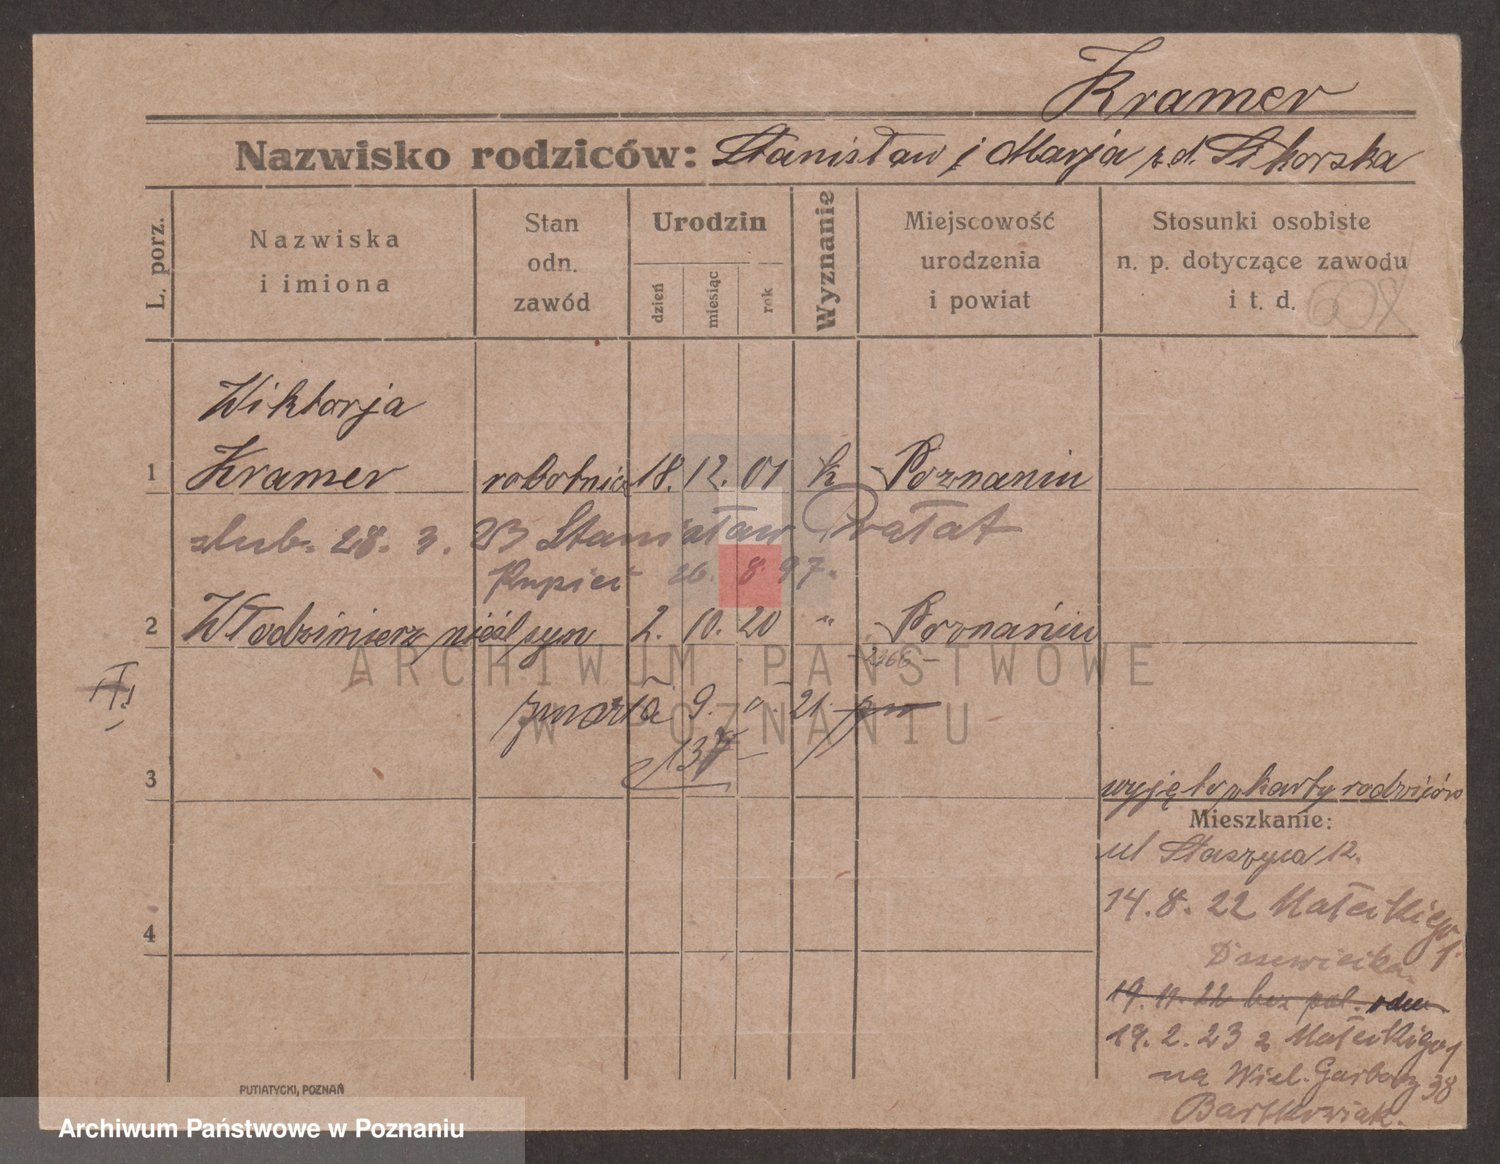 Kramer
Nazwisko rodziców: Stanisław i Marja z d. Sikorska
L. porz.
Nazwiska
i imiona
Stan
odn.
zawód
Urodzin
dzień
miesiąc
rok
Wyznanie
Miejscowość
urodzenia
i powiat
Stosunki osobiste
n. p. dotyczące zawodu
i t. d.
Wiktorja
1 Kramer robotnica 18. 12. 01 k Poznaniu
ślub. 28. 3. 23 Stanisław Prałat
Kupiec 26. 8. 97.
2 Włodzimierz nieśl syn 2. 10. 20 " Poznaniu
ARCHIWUM PAŃSTWOWE
W POZNANIU
zmarła 9. 21.
137
3
wyjęto z karty rodziców
Mieszkanie:
ul Staszyca 12.
14. 8. 22 Małeckiego
1.
4
19. 11. 22 bez pol. odm.
19. 2. 23 z Małeckiego 1
na Wiel. Garbary 38
Bartkowiak.
PUTIATYCKI, POZNAŃ
Archiwum Państwowe w Poznaniu